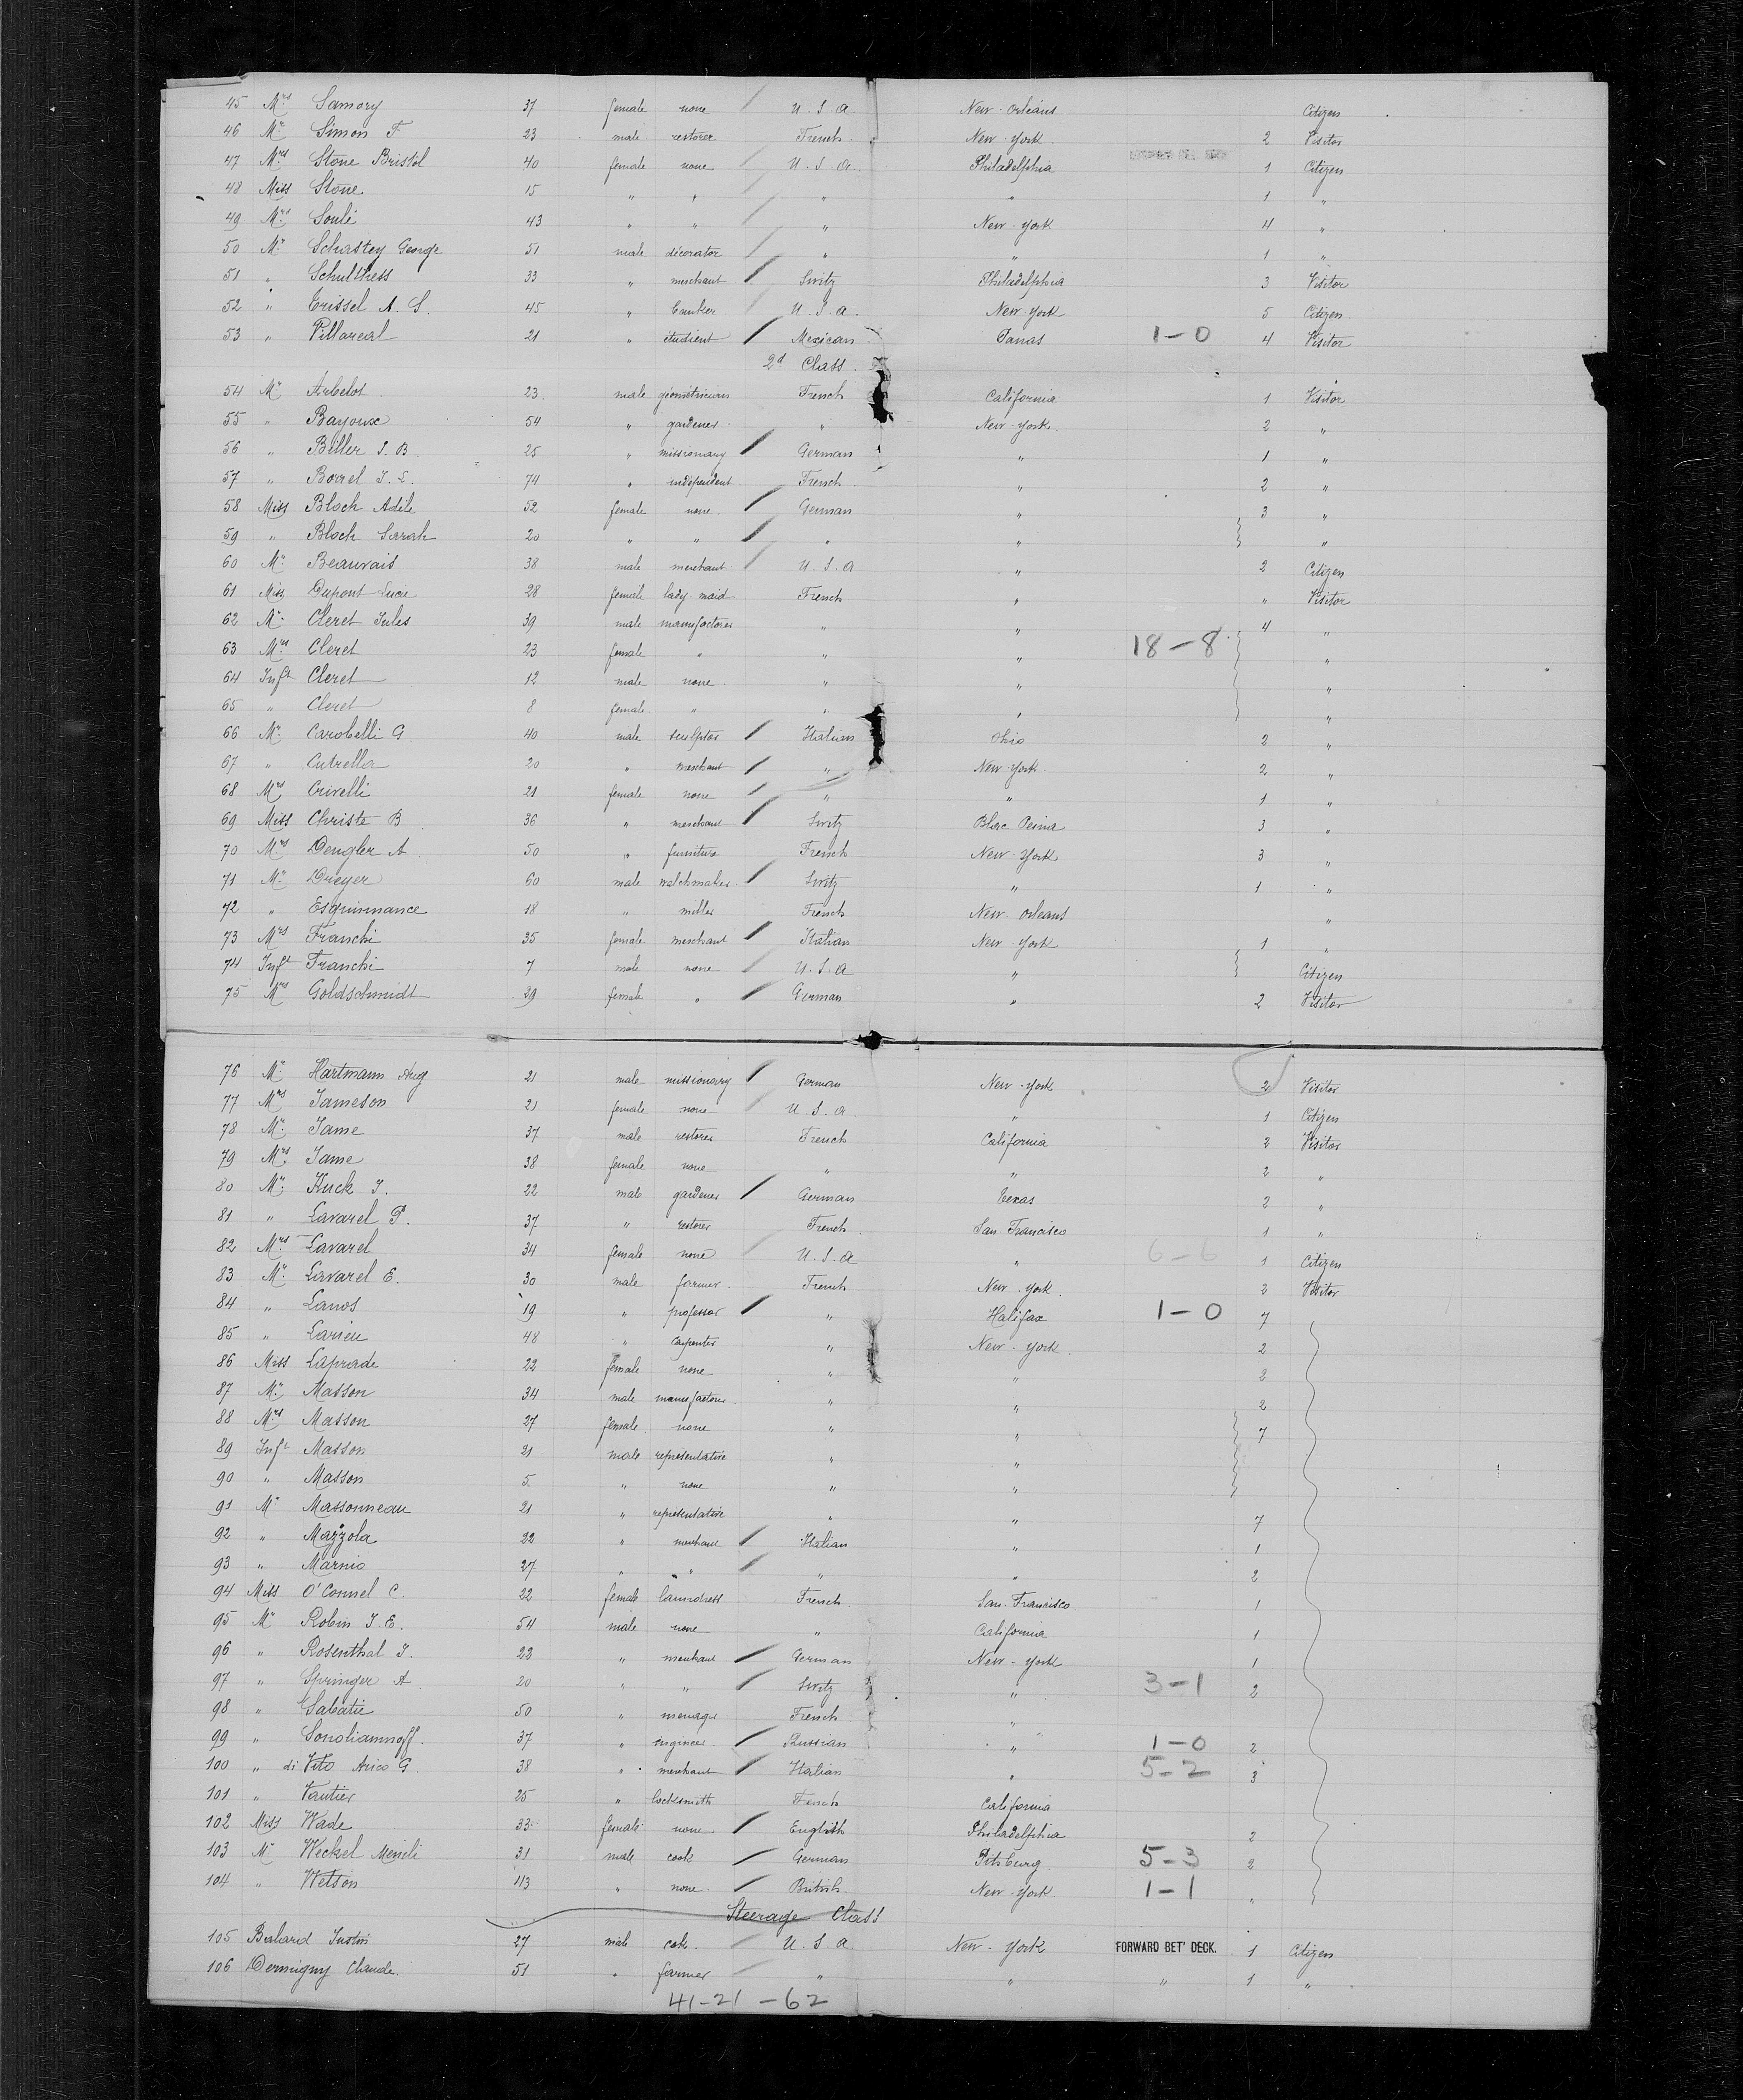 45 Mrs Samory 37 female none U.S.a. New-Orléans Citizen
46 Mr Simon F 23 male restorer French New-York 2 Visitor
47 Mrs Stone Bristol 40 female none U.S.a. Philadelphia 1 Citizen
48 Miss Stone 15 " " " " 1 "
49 Mrs Soulé 43 " " " New-York 4 "
50 Mr Schastey George 51 male décorator " " 1 "
51 " Schulthess 33 " merchant Switz Philadelphia 3 Visitor
52 " Crissel A.S. 45 " banker U.S.a. New York 5 Citizen
53 " Villareal 21 " étudient Mexican 1-0 4 Visitor
2d Class.
54 Mr Arbelot 23 male géometricien French California 1 Visitor
55 " Bayoux 54 " gardener " New-York 2 "
56 " Biller J.B. 25 " missionary German " 1 "
57 " Borel J.L. 74 " independent French " 2 "
58 Miss Bloch Adèle 52 female none German " 3 "
59 " Bloch Sarah 20 " " " " "
60 Mr Beauvais 38 male merchant U.S.a " 2 Citizen
61 Miss Dupont Lucie 28 female lady-maid French " " Visitor
62 Mr Cleret Jules 39 male manufactorer " " 4 "
63 Mrs Cleret 23 female " " " 18-8 "
64 Inft Cleret 12 male none " " "
65 " Cleret 8 female " " " "
66 Mr Carobelli G 40 male sculptor Italian Ohio 2 "
67 " Cutrella 20 " merchant " New-York 2 "
68 Mrs Crivelli 21 female none " " 1 "
69 Miss Christe B 36 " merchant Switz 3 "
70 Mrs Dengler A 50 " furniture French New-York 3 "
71 Mr Dreyer 60 male watchmaker Switz " 1 "
72 " Esquinmance 18 " miller French New-Orleans "
73 Mrs Franchi 35 female merchant Italian New-York 1 "
74 Inft Franchi 7 male none U.S.a " Citizen
75 Mrs Goldschmidt 29 female " German " 2 Visitor
76 Mr Hartmann Aug 21 male missionary German New-York 2 Visitor
77 Mrs Jameson 21 female none U.S.a. " 1 Citizen
78 Mr Jame 37 male restorer French California 2 Visitor
79 Mrs Jame 38 female none " " 2 "
80 Mr Kuck J. 22 male gardener German Texas 2 "
81 " Lavarel P. 37 " restorer French San-Francisco 1 "
82 Mrs Lavarel 34 female none U.S.a " 6-6 1 Citizen
83 Mr Lavarel E. 30 male farmer French New-York 2 Visitor
84 " Lanos 19 " professor " Halifax 1-0 7
85 " Larieu 48 " carpenter " New-York 2
86 Miss Laprade 22 female none " " 2
87 Mr Masson 34 male manufactorer " " 2
88 Mrs Masson 27 female none " " 7
89 Inft Masson 21 male representative " "
90 " Masson 5 " none " "
91 Mr Massonneau 21 " representative " " 7
92 " Mazzola 22 " merchant Italian " 1
93 " Marnio 27 " " " " 2
94 Miss O'Connel C. 22 female laundress French San-Francisco 1
95 Mr Robin J.E. 54 male none " California 1
96 " Rosenthal J. 23 " merchant German New-York 1
97 " Springer A. 20 " " Switz " 3-1 2
98 " Sabatie 50 " menager French "
99 " Sonoliamnoff 37 " engineer Russian " 1-0 2
100 " di Vito Arico G. 38 " merchant Italian " 5-2 3
101 " Vautier 25 " locksmith French California
102 Miss Wade 33 female none English Philadelphia 2
103 Mr Weckel Meinli 31 male cook German Pitsburg 5-3 2
104 " Wetson 43 " none British New-York 1-1 "
Steerage Class
105 Balard Justin 27 male cook U.S.a New-York FORWARD BET' DECK. 1 Citizen
106 Dermigny Claude. 51 " farmer " " " 1 "
41-21-62